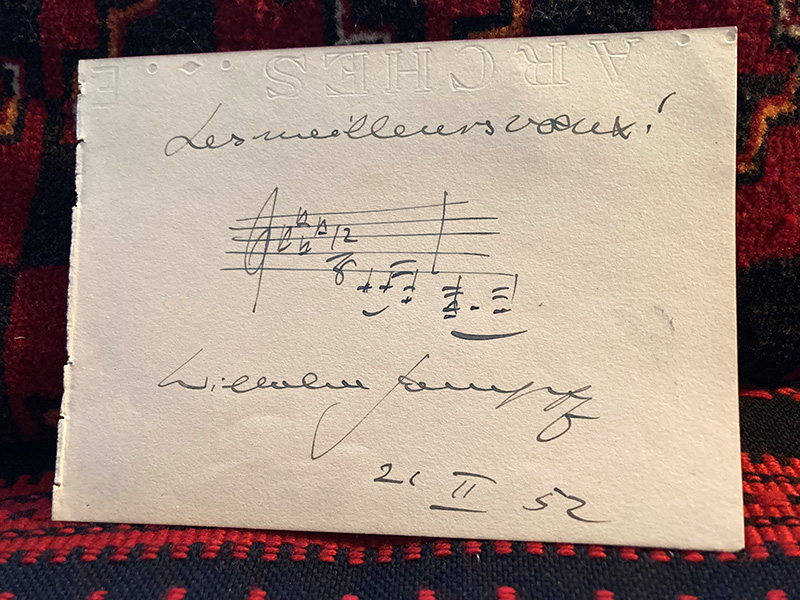 ARCHES
Les meilleurs vœux!
12
8
Wilhelm Kempff
21 II 52